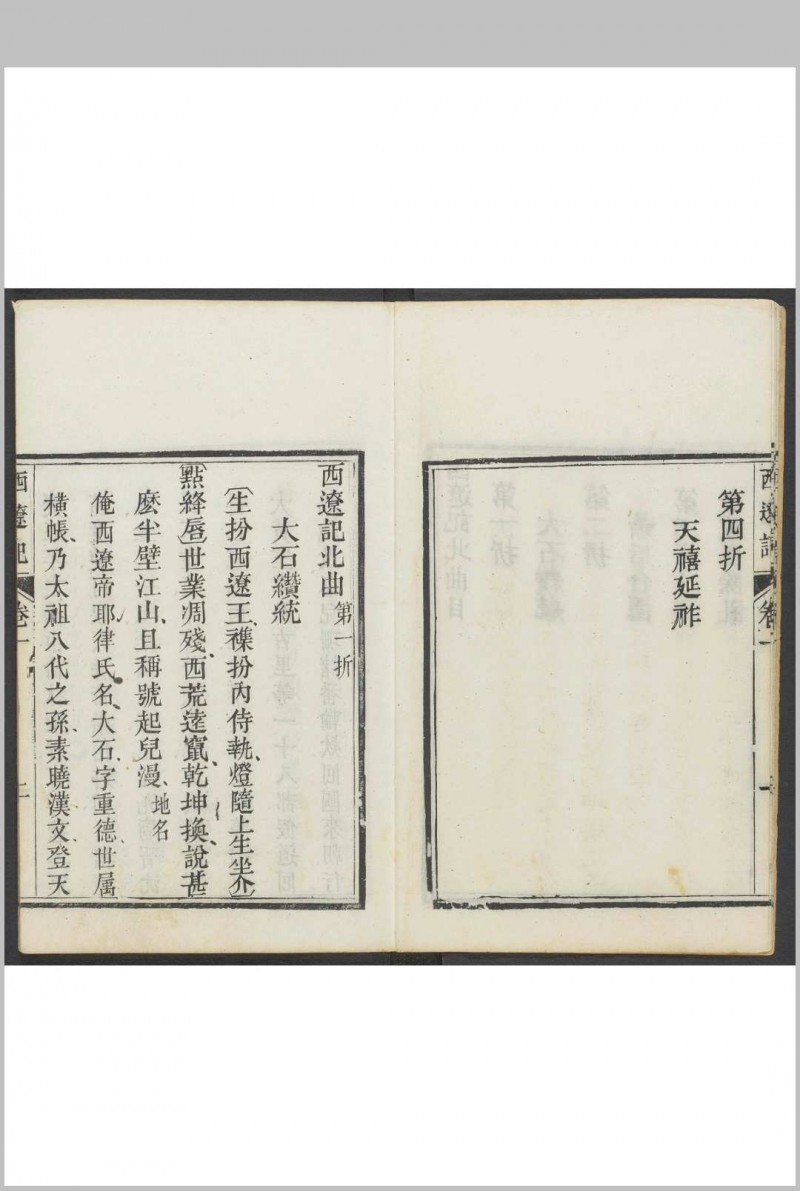 西遼記 卷一 一
第四折
天禧延祚
西遼記北曲 第一折
大石纘統
〔生扮西遼王、襍扮內侍執燈隨上生坐介〕
〔點絳唇〕世業凋殘、西荒逺竄、乾坤換、說甚
麼半壁江山、且稱號起兒漫、地名
俺西遼帝耶律氏、名大石、字重德、世屬
橫帳、乃太祖八代之孫、素曉漢文、登天
西遼記 卷一 二